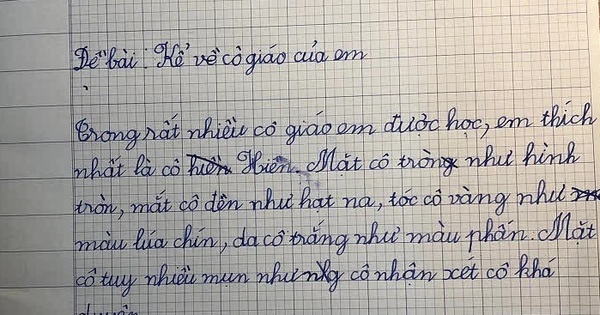 Đề bài: Kể về cô giáo của em
Trong rất nhiều cô giáo em được học, em thích
nhất là cô Hiền. Mặt cô tròn như hình
tròn, mắt cô đen như hạt na, tóc cô vàng như
màu lúa chín, da cô trắng như màu phấn. Mặt
cô tuy nhiều mụn nhưng cô nhận xét cô khá